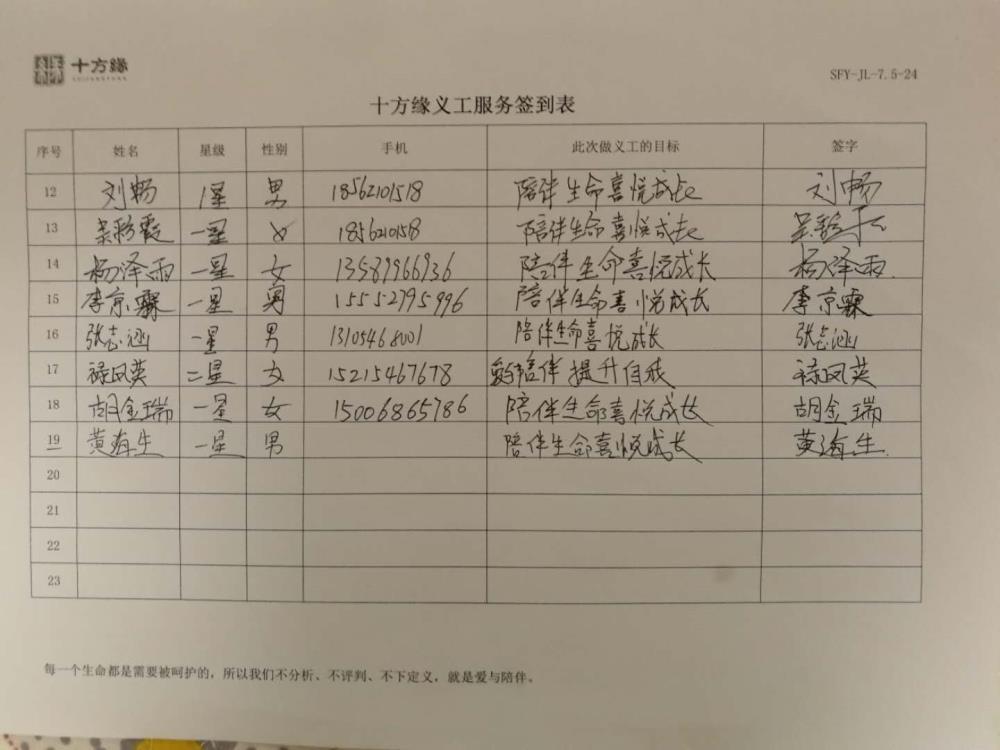 十方缘
SFY-JL-7.5-24
十方缘义工服务签到表
序号 姓名 星级 性别 手机 此次做义工的目标 签字
12 刘畅 1星 男 18562101518 陪伴生命喜悦成长 刘畅
13 吴彩霞 一星 女 陪伴生命喜悦成长
14 杨泽雨 一星 女 13589966936 陪伴生命喜悦成长 杨泽雨
15 李京霖 一星 男 15552795996 陪伴生命喜悦成长 李京霖
16 张志涵 一星 男 13105468001 陪伴生命喜悦成长 张志涵
17 禄凤英 二星 女 15215467678 陪伴提升自我 禄凤英
18 胡金瑞 一星 女 15006865786 陪伴生命喜悦成长 胡金瑞
19 黄海生 一星 男 陪伴生命喜悦成长 黄海生
20
21
22
23
每一个生命都是需要被呵护的，所以我们不分析、不评判、不下定义，就是爱与陪伴。